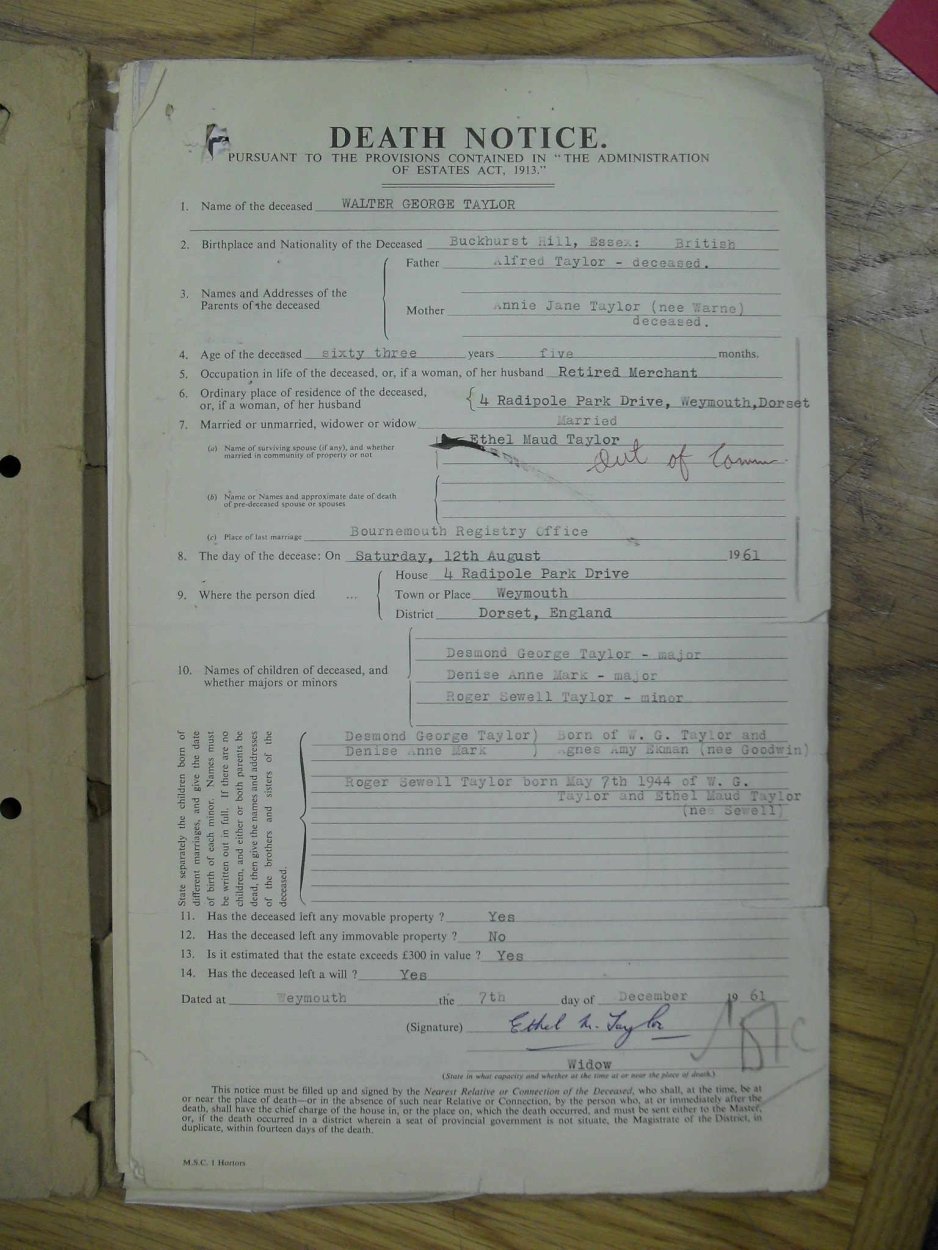 DEATH NOTICE.
PURSUANT TO THE PROVISIONS CONTAINED IN "THE ADMINISTRATION
OF ESTATES ACT, 1913."
1. Name of the deceased WALTER GEORGE TAYLOR
2. Birthplace and Nationality of the Deceased Buckhurst Hill, Essex: British
3. Names and Addresses of the
Parents of the deceased
Father Alfred Taylor - deceased.
Mother Annie Jane Taylor (nee Warne)
deceased.
4. Age of the deceased sixty three years five months.
5. Occupation in life of the deceased, or, if a woman, of her husband Retired Merchant
6. Ordinary place of residence of the deceased,
or, if a woman, of her husband
4 Radipole Park Drive, Weymouth,Dorset
7. Married or unmarried, widower or widow Married
(a) Name of surviving spouse (if any), and whether
married in community of property or not
Ethel Maud Taylor
Out of Comm
(b) Name or Names and approximate date of death
of pre-deceased spouse or spouses
(c) Place of last marriage Bournemouth Registry Office
8. The day of the decease: On Saturday, 12th August 1961
9. Where the person died ...
House 4 Radipole Park Drive
Town or Place Weymouth
District Dorset, England
10. Names of children of deceased, and
whether majors or minors
Desmond George Taylor - major
Denise Anne Mark - major
Roger Sewell Taylor - minor
State separately the children born of
different marriages, and give the date
of birth of each minor. Names must
be written out in full. If there are no
children, and either or both parents be
dead, then give the names and addresses
of the brothers and sisters of the
deceased.
Desmond George Taylor) Born of W. G. Taylor and
Denise Anne Mark ) Agnes Amy Ekman (nee Goodwin)
Roger Sewell Taylor born May 7th 1944 of W. G.
Taylor and Ethel Maud Taylor
(nee Sewell)
11. Has the deceased left any movable property ? Yes
12. Has the deceased left any immovable property ? No
13. Is it estimated that the estate exceeds £300 in value ? Yes
14. Has the deceased left a will ? Yes
Dated at Weymouth the 7th day of December 19 61
(Signature) Ethel M. Taylor
Widow
(State in what capacity and whether at the time at or near the place of death.)
This notice must be filled up and signed by the Nearest Relative or Connection of the Deceased, who shall, at the time, be at
or near the place of death—or in the absence of such near Relative or Connection, by the person who, at or immediately after the
death, shall have the chief charge of the house in, or the place on, which the death occurred, and must be sent either to the Master,
or, if the death occurred in a district wherein a seat of provincial government is not situate, the Magistrate of the District, in
duplicate, within fourteen days of the death.
M.S.C. 1 Hortors